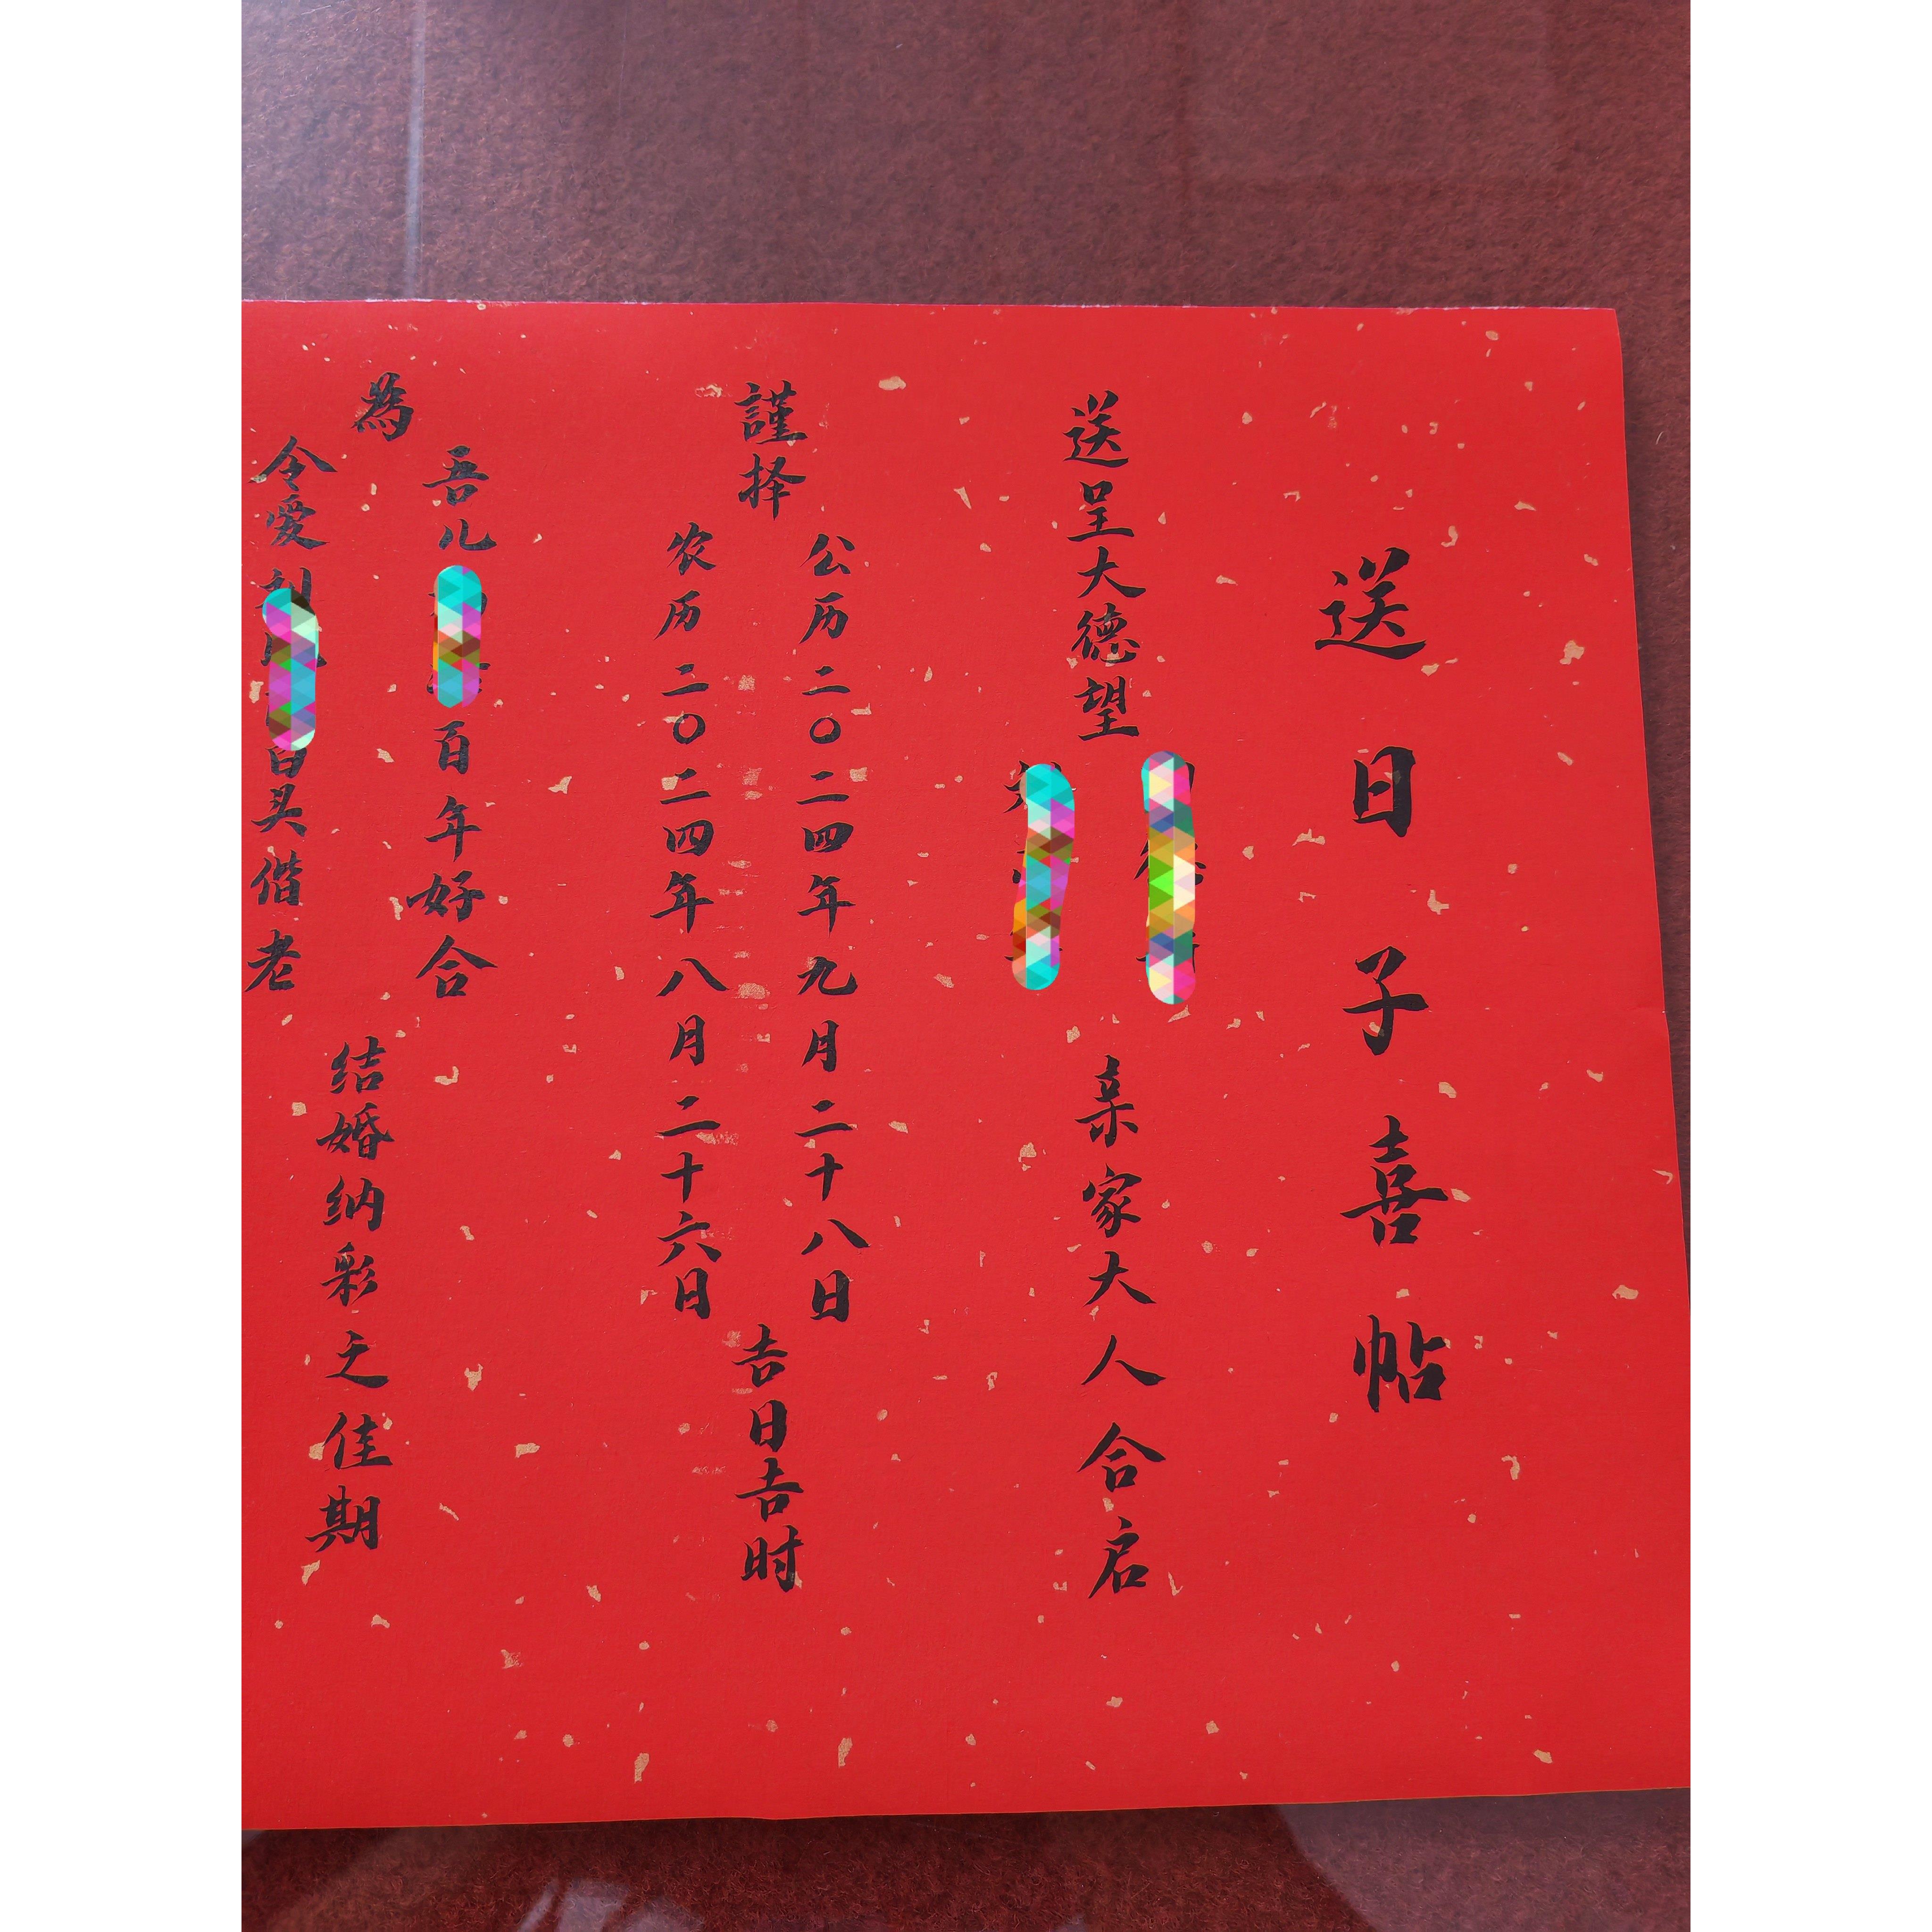 送日子喜帖
送呈大德望
亲家大人合启
謹择
公历二〇二四年九月二十八日
农历二〇二四年八月二十六日
吉日吉时
為
吾儿
百年好合
令爱
白头偕老
结婚纳彩之佳期